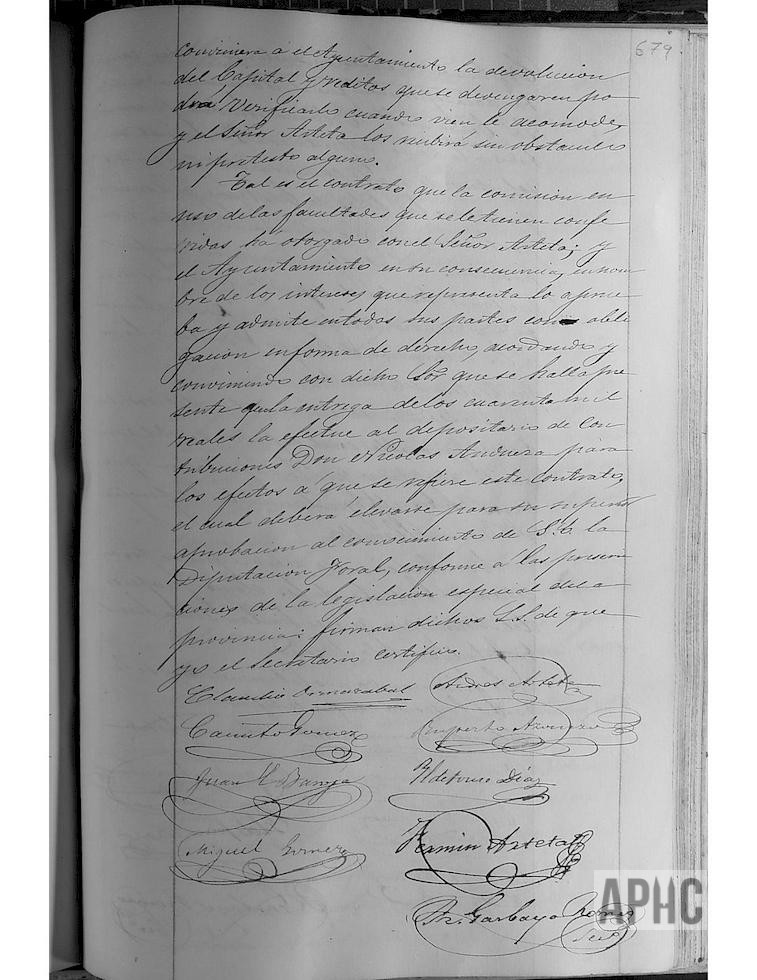 679
conviniera á el Ayuntamiento la devolucion
del Capital y reditos que se devengaren po
drá verificarlo cuando vien le acomode,
y el Señor Arteta los recibirá sin obstaculo
ni pretesto alguno.
Tal es el contrato que la comision en
uso de las facultades que se le tienen confe
ridas há otorgado con el Señor Arteta; y
el Ayuntamiento en su consecuencia, en nom
bre de los intereses que representa lo aprue
ba y admite en todas sus partes con obli
gacion en forma de derecho, acordando y
conviniendo con dicho Sor que se halla pre
sente que la entrega de los cuarenta mil
reales la efectue al depositario de Con
tribuciones Don Nicolas Andueza para
los efectos á que se refiere este contrato,
el cual deberá elevarse para su superior
aprobacion al conocimiento de S. E. la
Diputacion Foral, conforme á las prescrip
ciones de la legislacion especial de la
provincia: firman dichos S.S. de que
yo el Secretario certifico.
Claudio Andres Arteta
Canuto Gomez Ruperto
Juan Ildefonso Diaz
Miguel Gomez Fermin Arteta
Garbayo
Srio
APHC